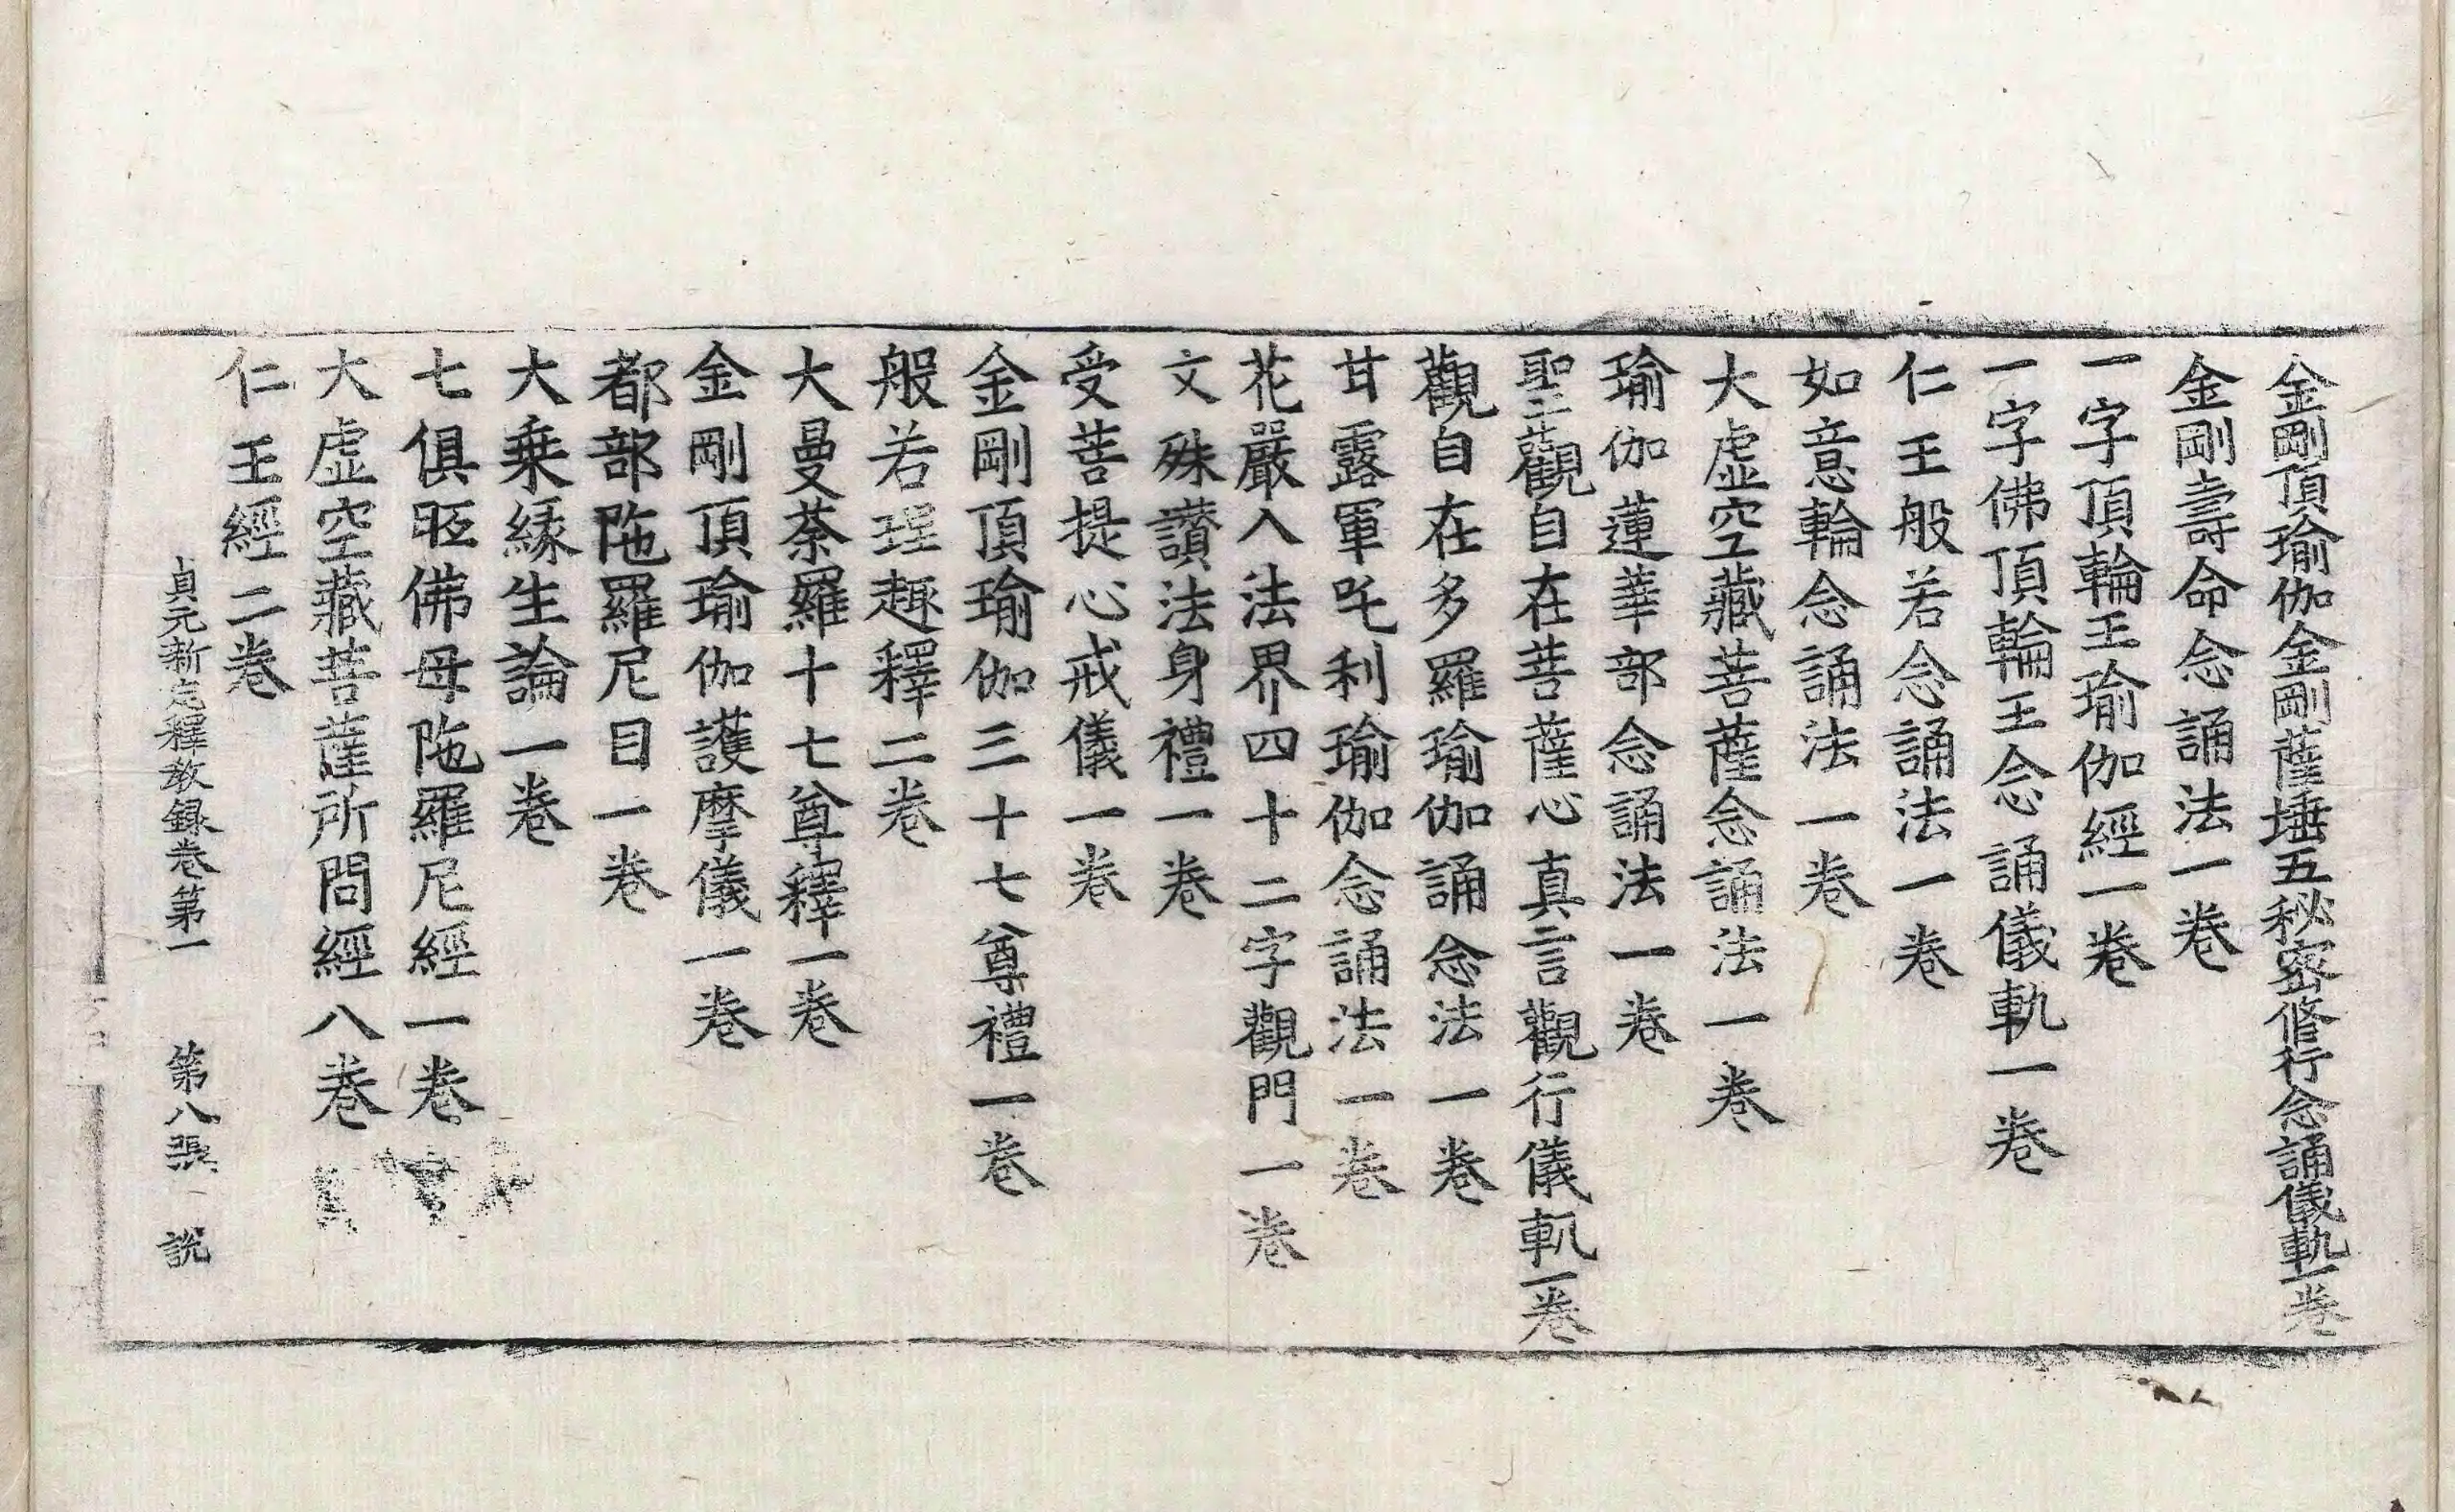 金剛頂瑜伽金剛薩埵五秘密修行念誦儀軌一卷
金剛壽命念誦法一卷
一字頂輪王瑜伽經一卷
一字佛頂輪王念誦儀軌一卷
仁王般若念誦法一卷
如意輪念誦法一卷
大虛空藏菩薩念誦法一卷
瑜伽蓮華部念誦法一卷
聖觀自在菩薩心真言觀行儀軌一卷
觀自在多羅瑜伽誦念法一卷
甘露軍吒利瑜伽念誦法一卷
花嚴入法界四十二字觀門一卷
文殊讃法身禮一卷
受菩提心戒儀一卷
金剛頂瑜伽三十七尊禮一卷
般若理趣釋二卷
大曼荼羅十七尊釋一卷
金剛頂瑜伽護摩儀一卷
都部陁羅尼目一卷
大乗縁生論一卷
七俱胝佛母陁羅尼經一卷
大虛空藏菩薩所問經八卷
仁王經二卷
貞元新定釋教録卷第一 第八張 説